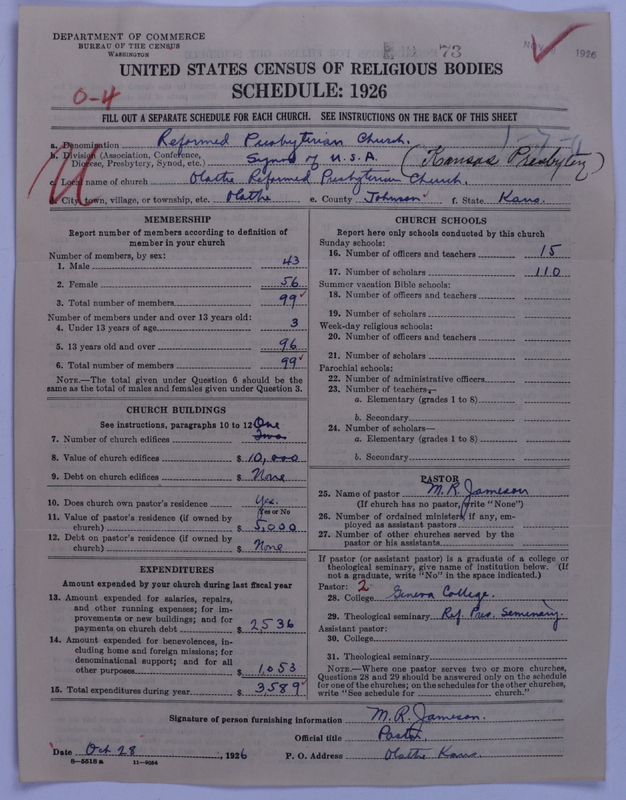 DEPARTMENT OF COMMERCE
BUREAU OF THE CENSUS
WASHINGTON
73
1926
UNITED STATES CENSUS OF RELIGIOUS BODIES
SCHEDULE: 1926
0-4
FILL OUT A SEPARATE SCHEDULE FOR EACH CHURCH. SEE INSTRUCTIONS ON THE BACK OF THIS SHEET
a. Denomination Reformed Presbyterian Church.
b. Division (Association, Conference, Diocese, Presbytery, Synod, etc.) Synod of U.S.A. (Kansas Presbytery)
c. Local name of church Olathe Reformed Presbyterian Church.
City, town, village, or township, etc. Olathe e. County Johnson f. State Kans.
MEMBERSHIP
Report number of members according to definition of
member in your church
Number of members, by sex:
1. Male 43
2. Female 56
3. Total number of members 99
Number of members under and over 13 years old:
4. Under 13 years of age 3
5. 13 years old and over 96
6. Total number of members 99
NOTE.—The total given under Question 6 should be the
same as the total of males and females given under Question 3.
CHURCH BUILDINGS
See instructions, paragraphs 10 to 12
One
7. Number of church edifices Two
8. Value of church edifices $ 10,000
9. Debt on church edifices $ None
10. Does church own pastor's residence Yes.
Yes or No
11. Value of pastor's residence (if owned by
church) $ 5,000
12. Debt on pastor's residence (if owned by
church) $ None
EXPENDITURES
Amount expended by your church during last fiscal year
13. Amount expended for salaries, repairs,
and other running expenses; for im-
provements or new buildings; and for
payments on church debt $ 2536
14. Amount expended for benevolences, in-
cluding home and foreign missions; for
denominational support; and for all
other purposes $ 1,053
15. Total expenditures during year $ 3589
CHURCH SCHOOLS
Report here only schools conducted by this church
Sunday schools:
16. Number of officers and teachers 15
17. Number of scholars 110
Summer vacation Bible schools:
18. Number of officers and teachers
19. Number of scholars
Week-day religious schools:
20. Number of officers and teachers
21. Number of scholars
Parochial schools:
22. Number of administrative officers
23. Number of teachers—
a. Elementary (grades 1 to 8)
b. Secondary
24. Number of scholars—
a. Elementary (grades 1 to 8)
b. Secondary
PASTOR
25. Name of pastor M. R. Jameson
(If church has no pastor, write "None")
26. Number of ordained ministers, if any, em-
ployed as assistant pastors
27. Number of other churches served by the
pastor or his assistants
If pastor (or assistant pastor) is a graduate of a college or
theological seminary, give name of institution below. (If
not a graduate, write "No" in the space indicated.)
Pastor: 2
28. College Geneva College.
29. Theological seminary Ref. Pres. Semenary.
Assistant pastor:
30. College
31. Theological seminary
NOTE.—Where one pastor serves two or more churches,
Questions 28 and 29 should be answered only on the schedule
for one of the churches; on the schedules for the other churches,
write "See schedule for church."
Signature of person furnishing information M. R. Jameson.
Official title Pastor.
Date Oct 28, 1926 P. O. Address Olathe Kans.
8-5518 a 11-9084